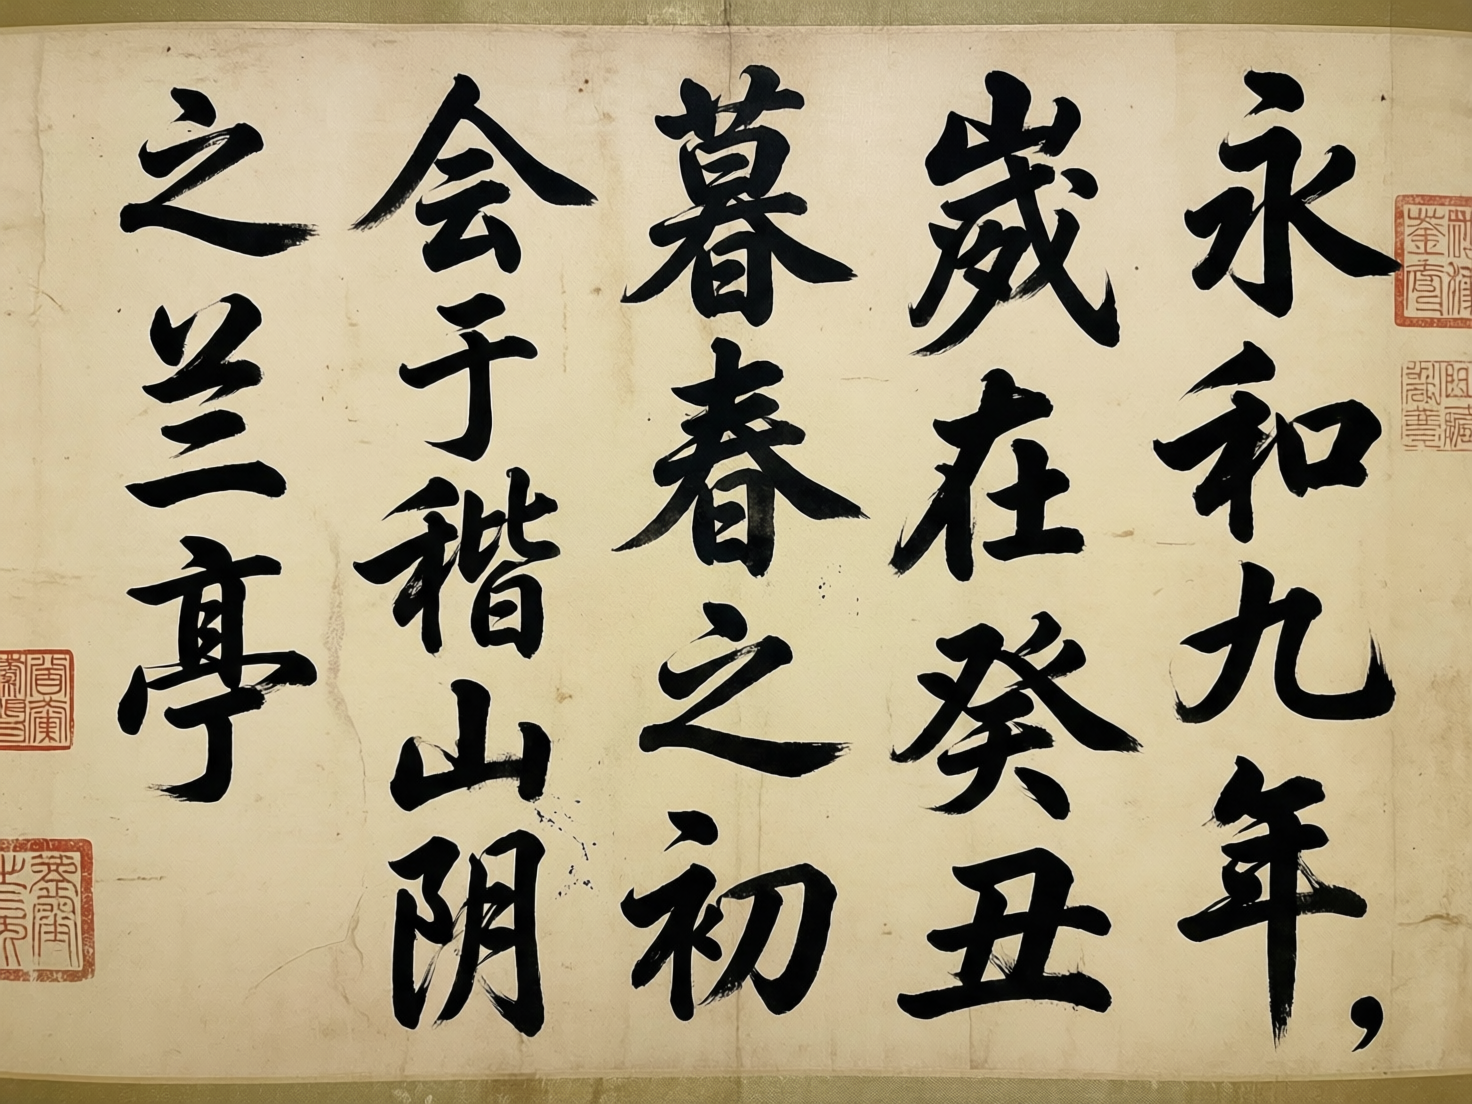 永和九年,
嵗在癸丑
暮春之初
会于稽山阴
之兰亭